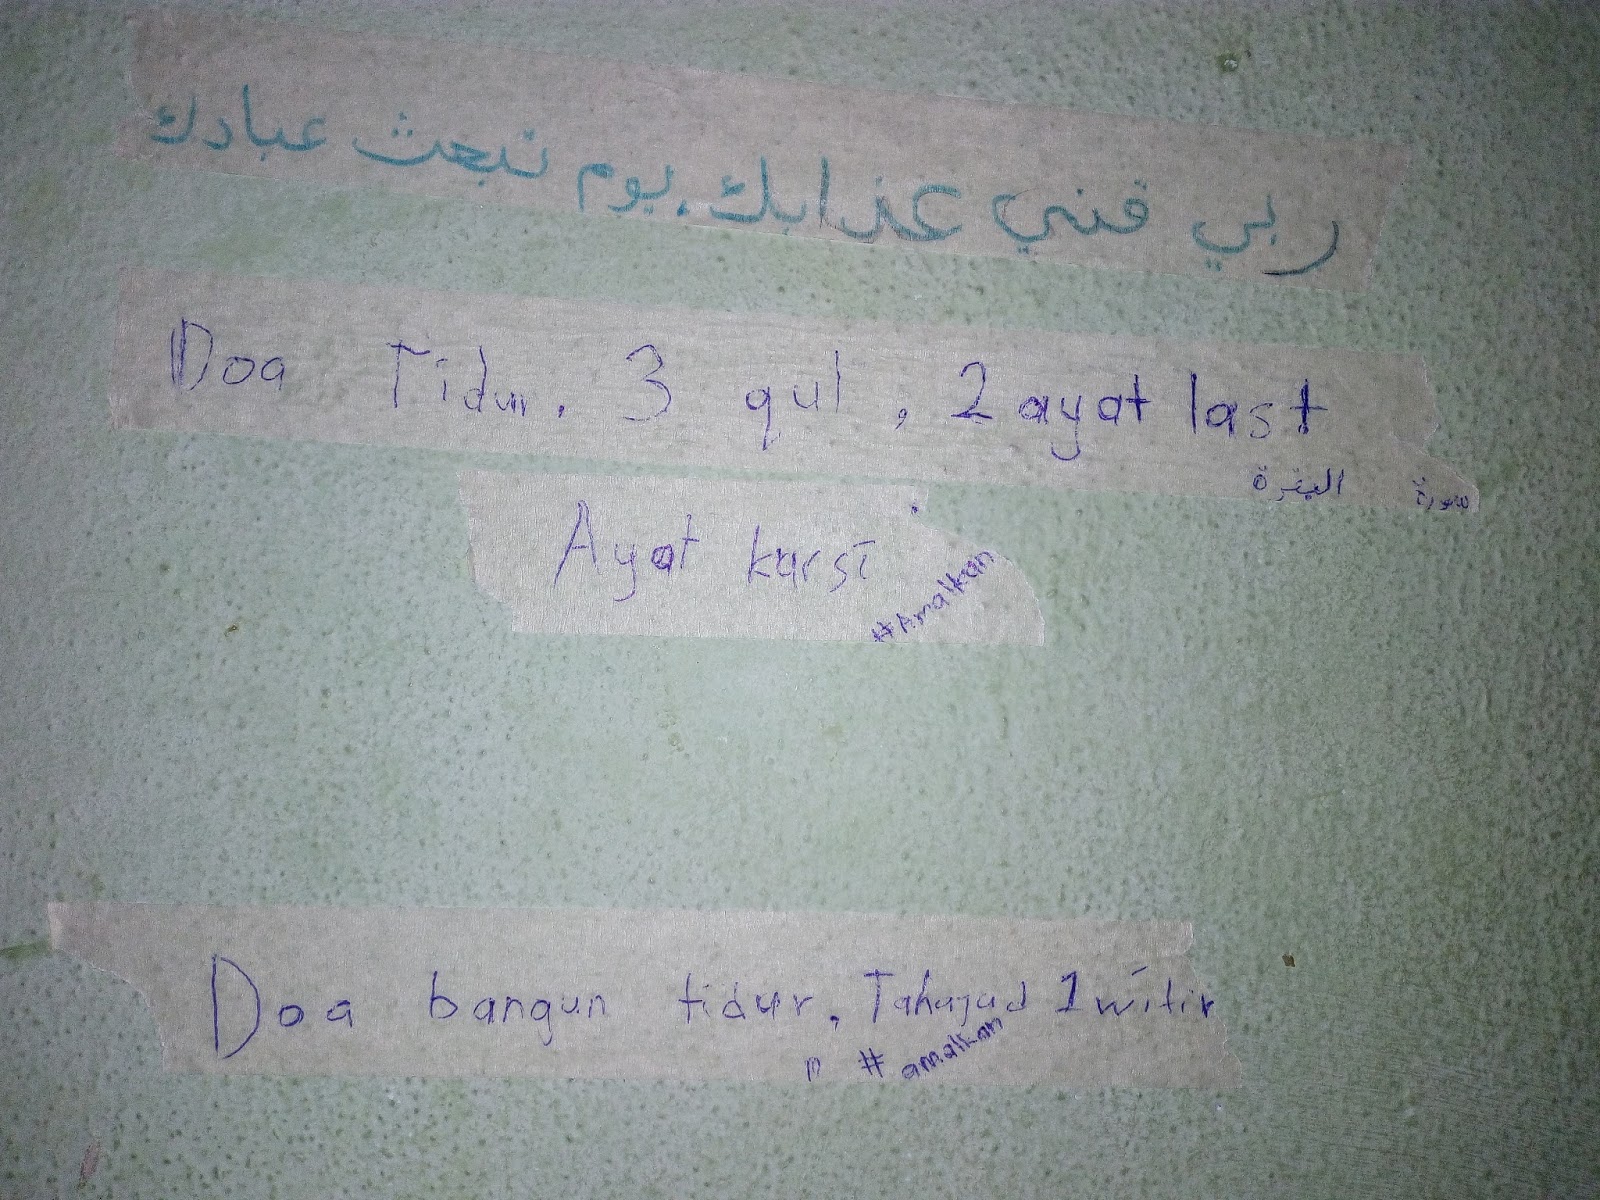 ربي قني عذابك يوم تبعث عبادك
Doa Tidur, 3 qul, 2 ayat last
سورة البقرة
Ayat kursi
#Amalkan
Doa bangun tidur, Tahajud 1 witir
# amalkan